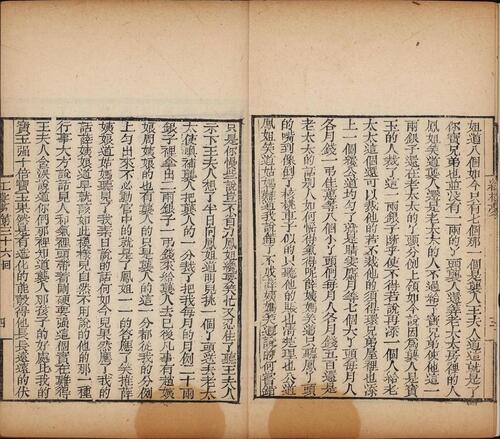 姐道人個如今只有七個那一個是襲人王夫人道這就是了
你寶兄弟也並沒有一兩的丫頭襲人還算老太太房裡的人
鳳姐笑道襲人還是老太太的人不過給了寶兄弟使他這一
兩銀子還在老太太的丫頭分例上領如今說因為襲人是寶
玉的人裁了這一兩銀子斷乎使不得若說再添一個人給老
太太這個還可以裁他的若不裁他的須得環兄弟屋裡也添
上一個纔公道均勻了就是晴雯麝月等七個大丫頭每月人
各月錢一吊佳蕙等八個小丫頭們每月人各月錢五百還是
老太太的話別人如何惱得氣得呢薛姨媽笑道只聽鳳丫頭
的嘴到像倒了核桃車子似的只聽他的賬也清楚理也公道
鳳姐笑道姑媽難道我說錯了不成薛姨媽笑道說的何嘗錯
只是你慢些說豈不省力鳳姐纔要笑忙又忍住了聽王夫人
示下王夫人想了半日向鳳姐道明兒挑一個丫頭送去老太
太使喚補襲人把襲人的一分裁了把我每月的月例二十兩
銀子裡拿出二兩銀子一吊錢來給襲人去已後凡事有趙姨
娘周姨娘的也有襲人的只是襲人的這一分都從我的分例
上勻出來不必動官中的就是了鳳姐一一的答應了笑推薛
姨娘道姑媽聽見了我素日說的話何如今兒果然應了我的
話薛姨娘道早就該如此模樣兒自然不用說的他的那一種
行事大方說話見人和氣裡頭帶著剛硬要強這個實在難得
王夫人含淚說道你們那裡知道襲人那孩子的好處比我的
寶玉強十倍寶玉果然是有造化的能彀得他長長遠遠的伏
第三十六回
四